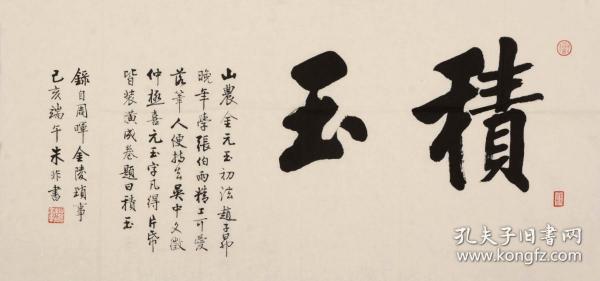 積玉
山農金元玉初法趙子昂
晚年學張伯雨精工可愛
落筆人便持去吳中文徵
仲極喜元玉字凡得片帋
皆裝潢成卷題曰積玉
錄自周暉金陵瑣事
己亥端午朱非書
孔夫子旧书网
www.kongfz.com